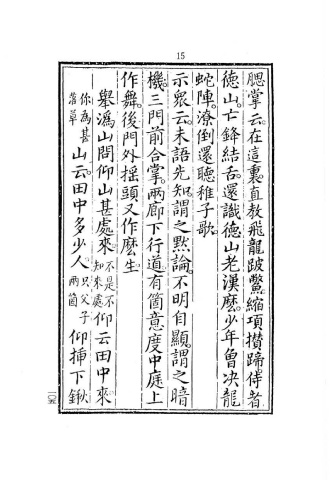 15
腮掌云在這裏直敎飛龍跛鱉縮項攢蹄侍者
德山亡鋒結舌還識德山老漢麽少年曾决龍
蛇陣潦倒還聽稚子歌
示衆云未語先知謂之黙論不明自顯謂之暗
機三門前合掌兩廊下行道有箇意度中庭上
作舞後門外揺頭又作麽生
擧潙山問仰山甚處來不是不知來處仰云田中來
你爲甚落草山云田中多少人只父子兩箇仰揷下鍬
一〇五